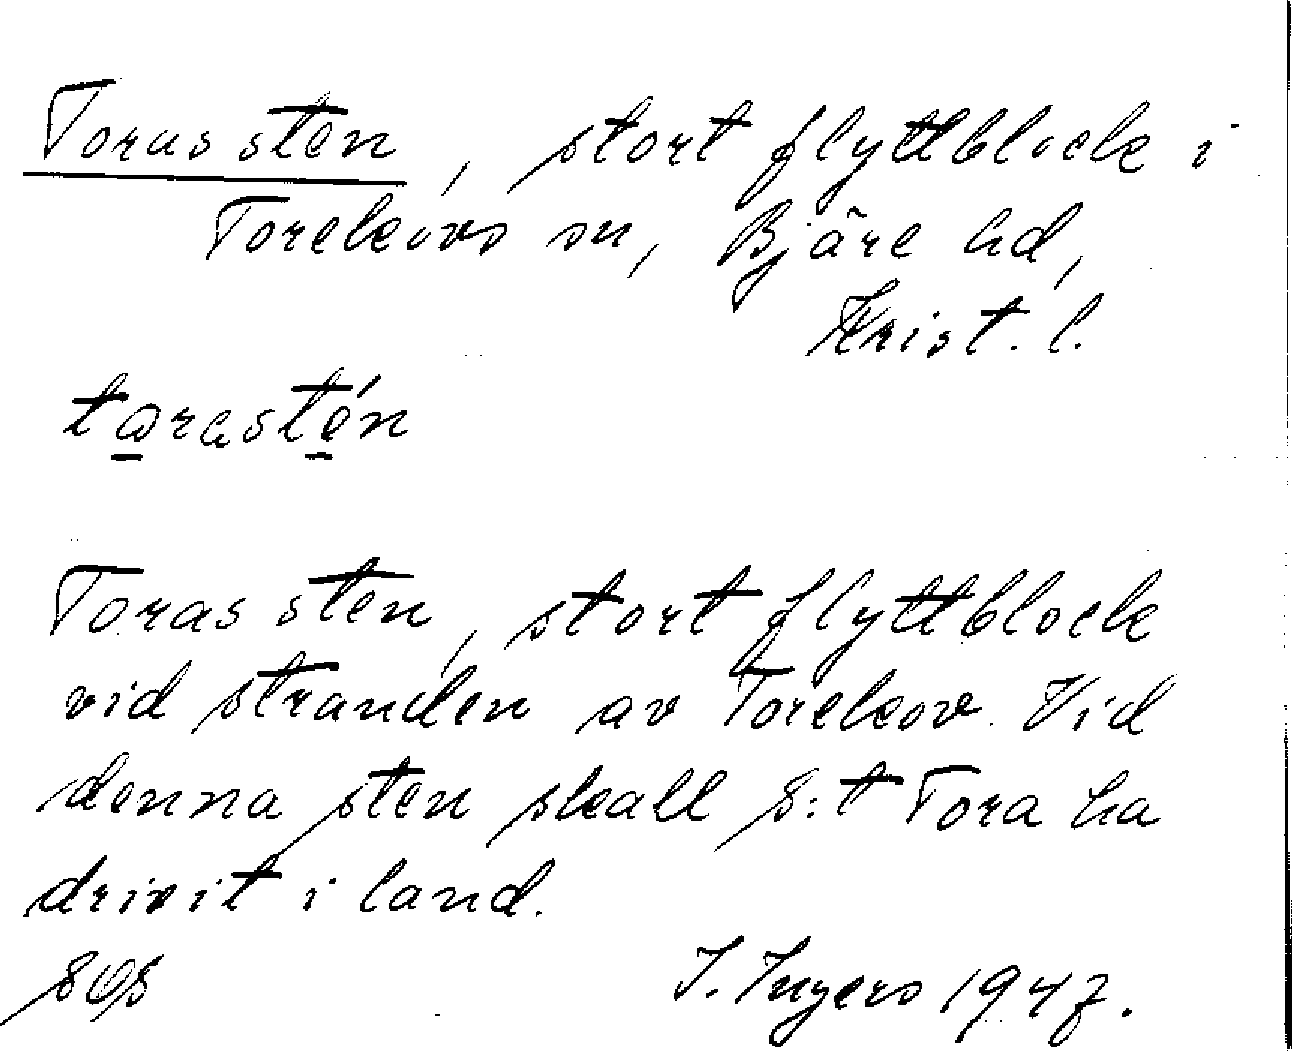 Toras sten, stort flyttblock i
Torekovs sn, Bjäre hd,
Krist. l.
torastén
Toras sten, stort flyttblock
vid stranden av Torekov. Vid
denna sten skall S:t Tora ha
drivit i land.
SOS I. Ingers 1947.